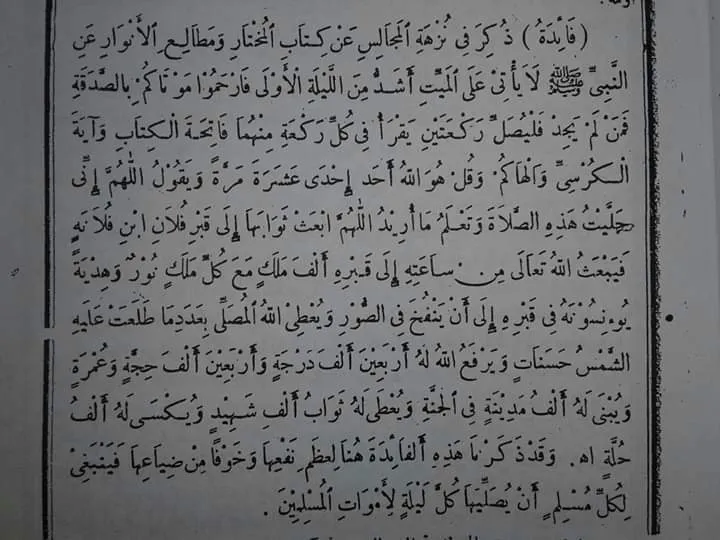 ( فَائِدَةٌ ) ذُكِرَ فِى نُزْهَةِ الْمَجَالِسِ عَنْ كِتَابِ الْمُخْتَارِ وَمَطَالِعِ الْأَنْوَارِ عَنِ
النَّبِىِّ ﷺ لَا يَأْتِىْ عَلَى الْمَيِّتِ أَشَدُّ مِنَ اللَّيْلَةِ الْأُوْلَى فَارْحَمُوْا مَوْتَاكُمْ بِالصَّدَقَةِ
فَمَنْ لَمْ يَجِدْ فَلْيُصَلِّ رَكْعَتَيْنِ يَقْرَأُ فِىْ كُلِّ رَكْعَةٍ مِنْهُمَا فَاتِحَةَ الْكِتَابِ وَآيَةَ
الْكُرْسِىِّ وَأَلْهَاكُمْ وَقُلْ هُوَ اللهُ أَحَدٌ إِحْدَى عَشَرَةَ مَرَّةً وَيَقُوْلُ اللّٰهُمَّ إِنِّى
صَلَّيْتُ هَذِهِ الصَّلَاةَ وَتَعْلَمُ مَا أُرِيْدُ اللّٰهُمَّ ابْعَثْ ثَوَابَهَا إِلَى قَبْرِ فُلَانِ ابْنِ فُلَانَةٍ
فَيَبْعَثُ اللهُ تَعَالَى مِنْ سَاعَتِهِ إِلَى قَبْرِهِ أَلْفَ مَلَكٍ مَعَ كُلِّ مَلَكٍ نُوْرٌ وَهَدِيَّةٌ
يُوءْنِسُوْنَهُ فِىْ قَبْرِهِ إِلَى أَنْ يَنْفُخَ فِى الصُّوْرِ وَيُعْطِى اللهُ الْمُصَلِّىَ بِعَدَدِ مَا طَلَعَتْ عَلَيْهِ
الشَّمْسُ حَسَنَاتٍ وَيَرْفَعُ اللهُ لَهُ أَرْبَعِيْنَ أَلْفَ دَرَجَةٍ وَأَرْبَعِيْنَ أَلْفَ حِجَّةٍ وَعُمْرَةٍ
وَيُبْنَى لَهُ أَلْفُ مَدِيْنَةٍ فِى الْجَنَّةِ وَيُعْطَى لَهُ ثَوَابُ أَلْفِ شَهِيْدٍ وَيُكْسَى لَهُ أَلْفُ
حُلَّةٍ اه. وَقَدْ ذَكَرْنَا هَذِهِ الْفَائِدَةَ هُنَا لِعِظَمِ نَفْعِهَا وَخَوْفًا مِنْ ضِيَاعِهَا فَيَنْبَغِىْ
لِكُلِّ مُسْلِمٍ أَنْ يُصَلِّيَهَا كُلَّ لَيْلَةٍ لِأَمْوَاتِ الْمُسْلِمِيْنَ .